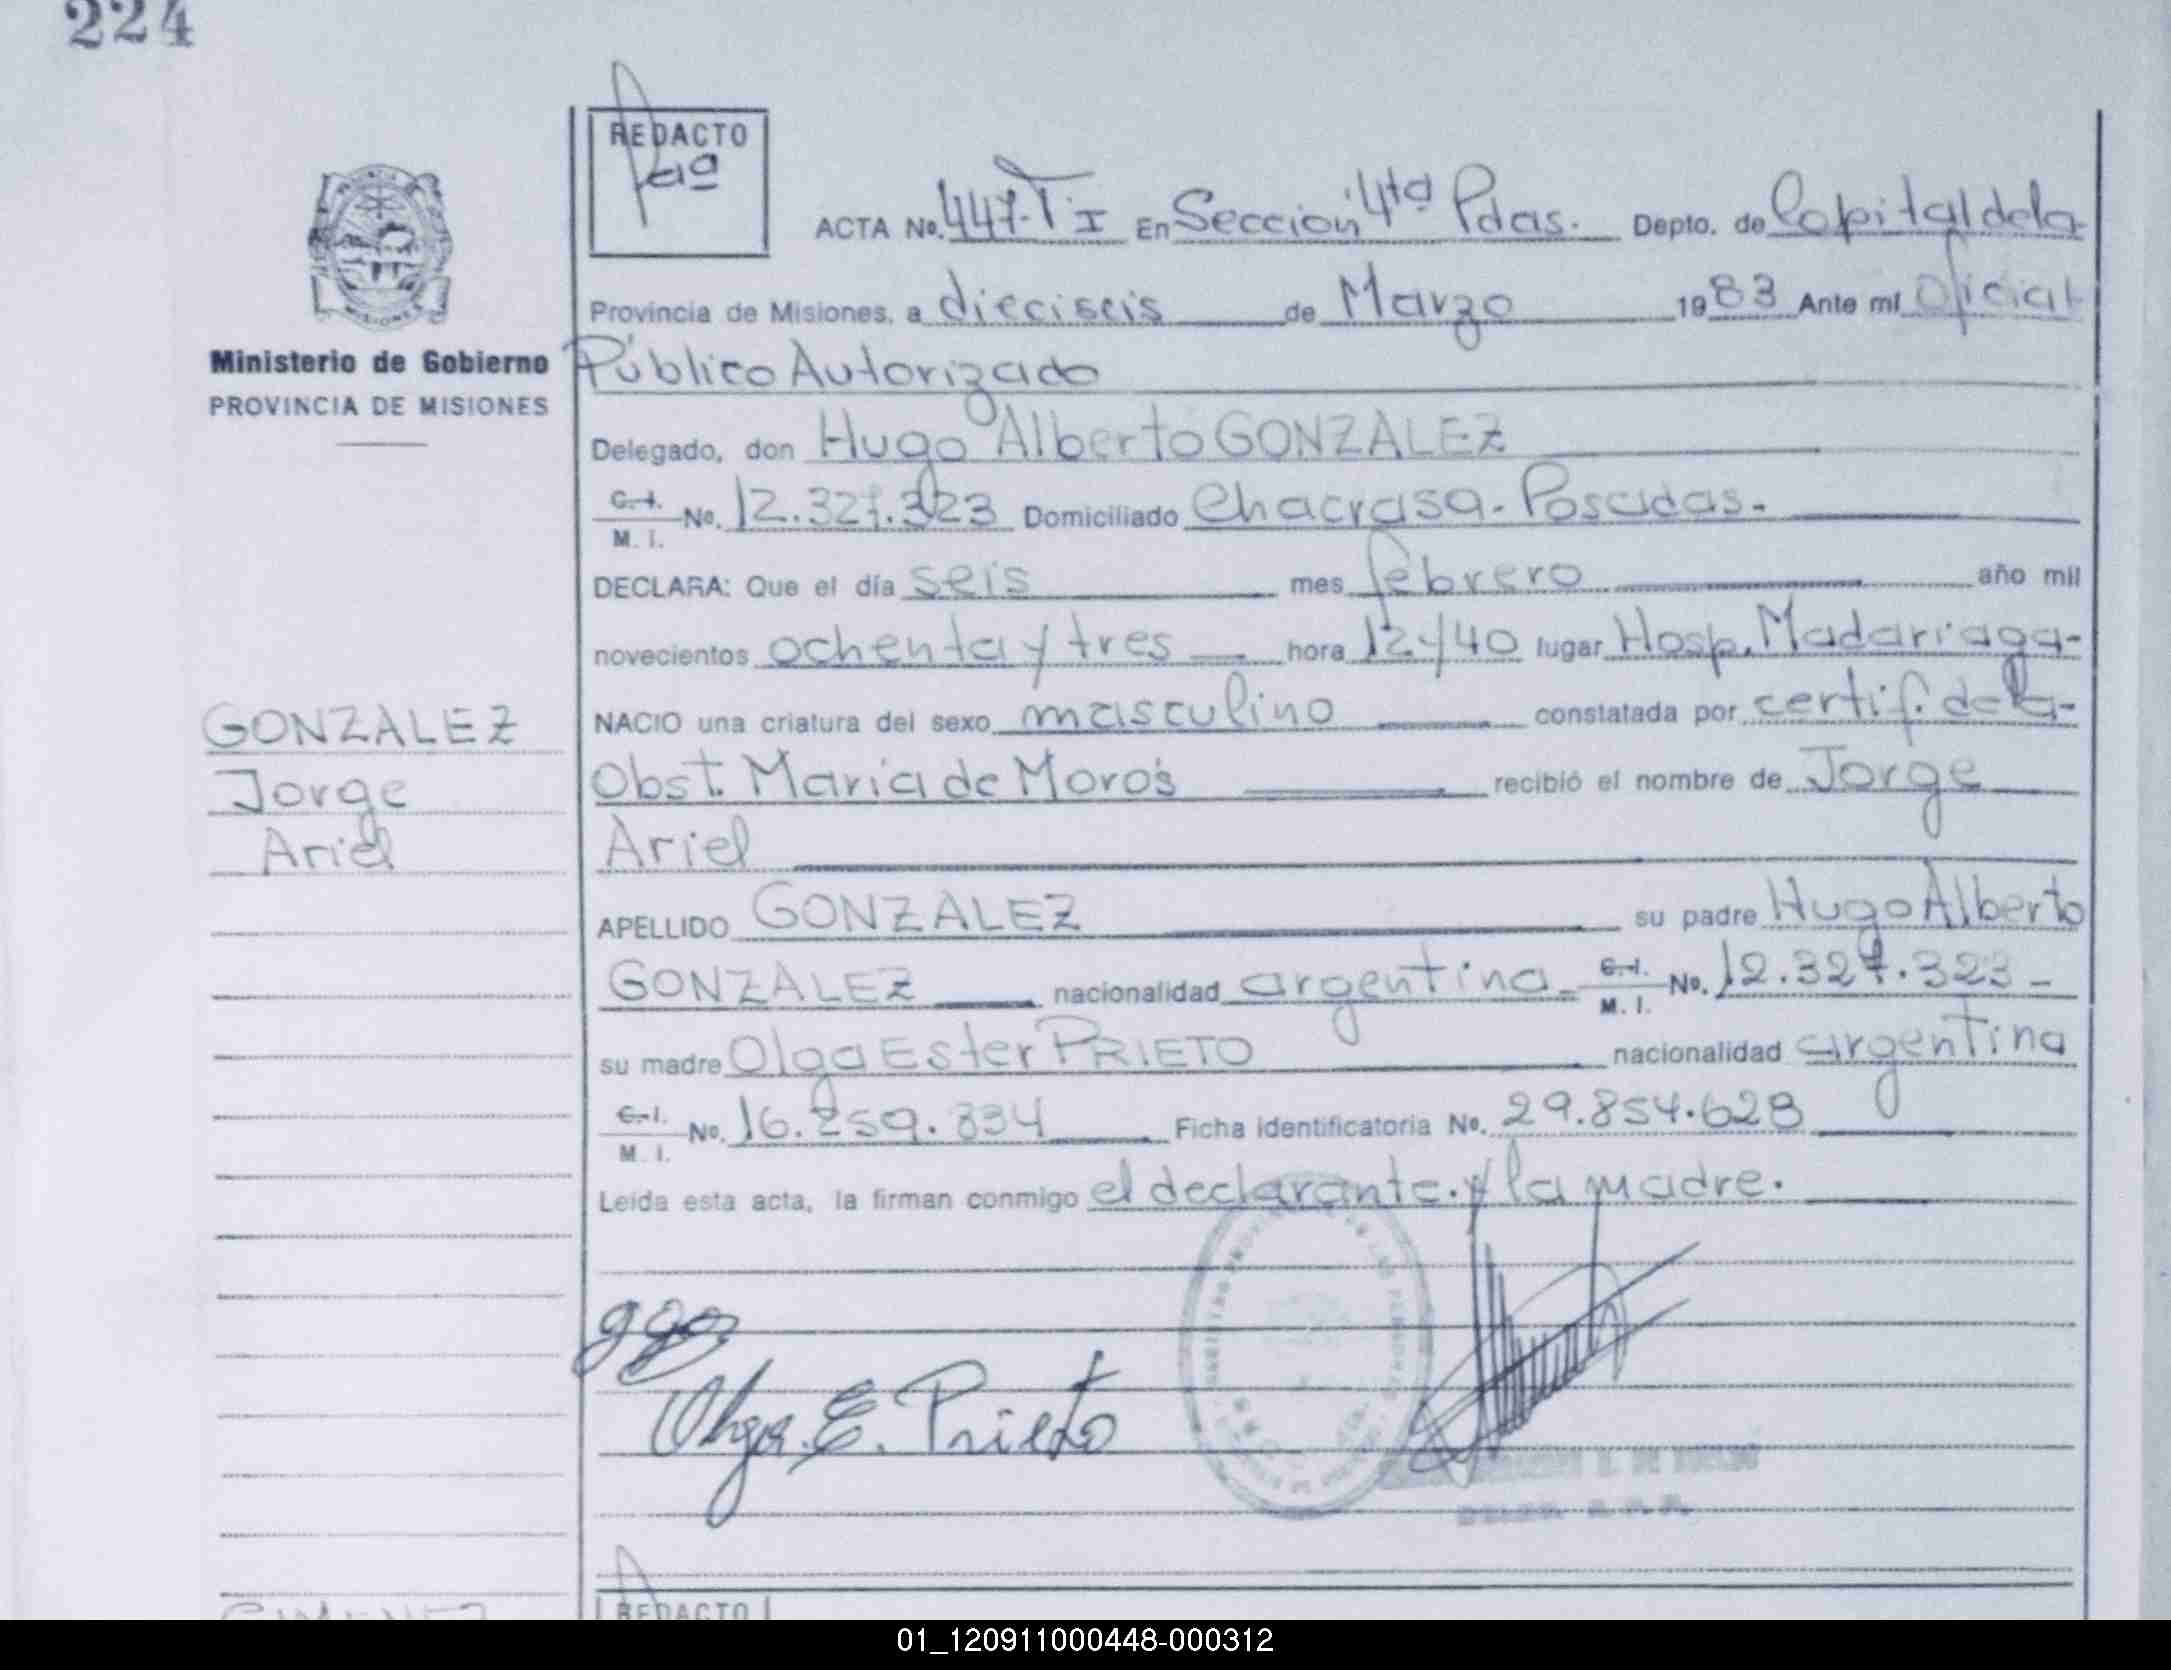 224
REDACTO
ACTA No. 447-T I En Sección 4ta Pdas. Depto. de Capital de la
Provincia de Misiones, a dieciseis de Marzo 1983 Ante mí Oficial
Ministerio de Gobierno
Público Autorizado
PROVINCIA DE MISIONES
Delegado, don Hugo Alberto GONZALEZ
C. I.
M. I. No. 12.327.323 Domiciliado Chacra 59. Posadas.
DECLARA: Que el día seis mes febrero año mil
novecientos ochenta y tres hora 12 y 40 lugar Hosp. Madariaga-
GONZALEZ
NACIO una criatura del sexo masculino constatada por certif. de la-
Jorge
Obst. Maria de Moros recibió el nombre de Jorge
Ariel
Ariel
APELLIDO GONZALEZ su padre Hugo Alberto
GONZALEZ nacionalidad argentina C. I. M. I. No. 12.327.323-
su madre Olga Ester PRIETO nacionalidad argentina
C. I.
M. I. No. 16.259.334 Ficha identificatoria No. 29.854.628
Leída esta acta, la firman conmigo el declarante. y la madre.
Olga. E. Prieto
REDACTO
01_120911000448-000312